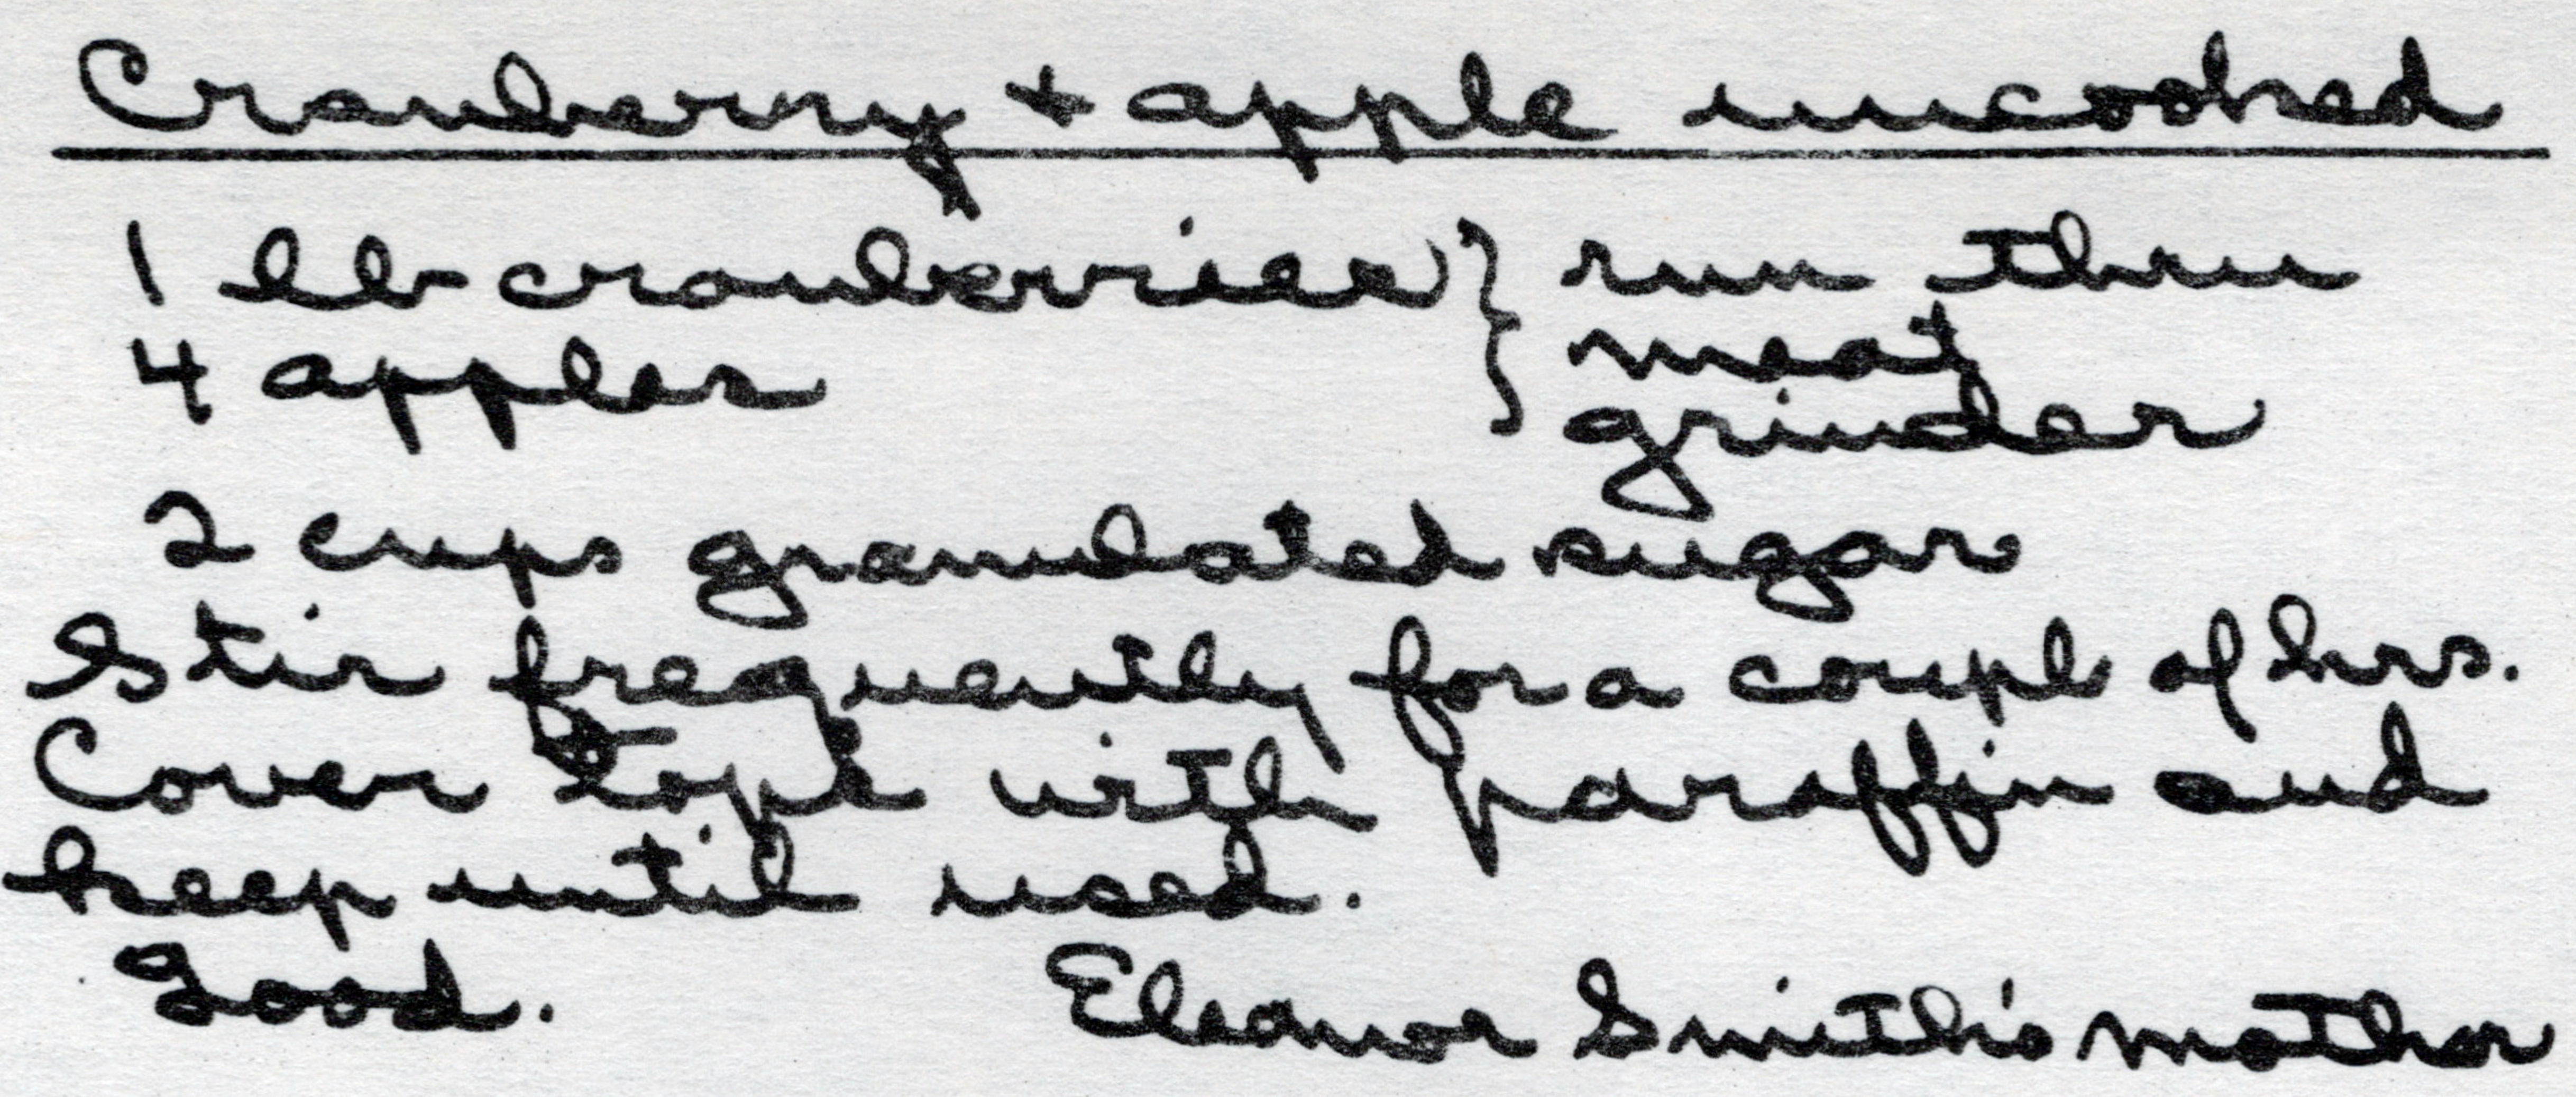 Cranberry + apple uncooked
1 lb cranberries } run thru
meat
4 apples
grinder
2 cups granulated sugar
Stir frequently for a coupl of hrs.
Cover tops with paraffin and
keep until used.
Good. Eleanor Smith's mother